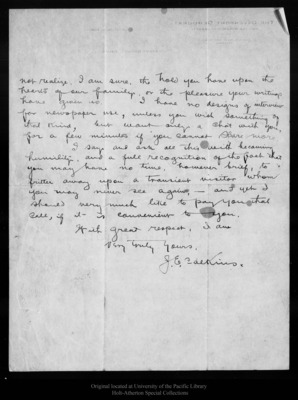 not realize, I am sure, the hold you have upon the
hearts of our family, or the pleasure your writings
have given us. I have no designs of interview
for newspaper use, unless you wish something of
that kind, but want only a chat with you,
for a few minutes if you cannot spare more.
I say and ask all this with becoming
humility, and a full recognition of the fact that
you may have no time, however brief, to
fritter away upon a transient visitor whom
you may never see again, — and yet I
should very much like to pay you that
call, if it is convenient to you.
With great respect, I am
Very truly yours,
J. E.
Original located at University of the Pacific Library
Holt-Atherton Special Collections